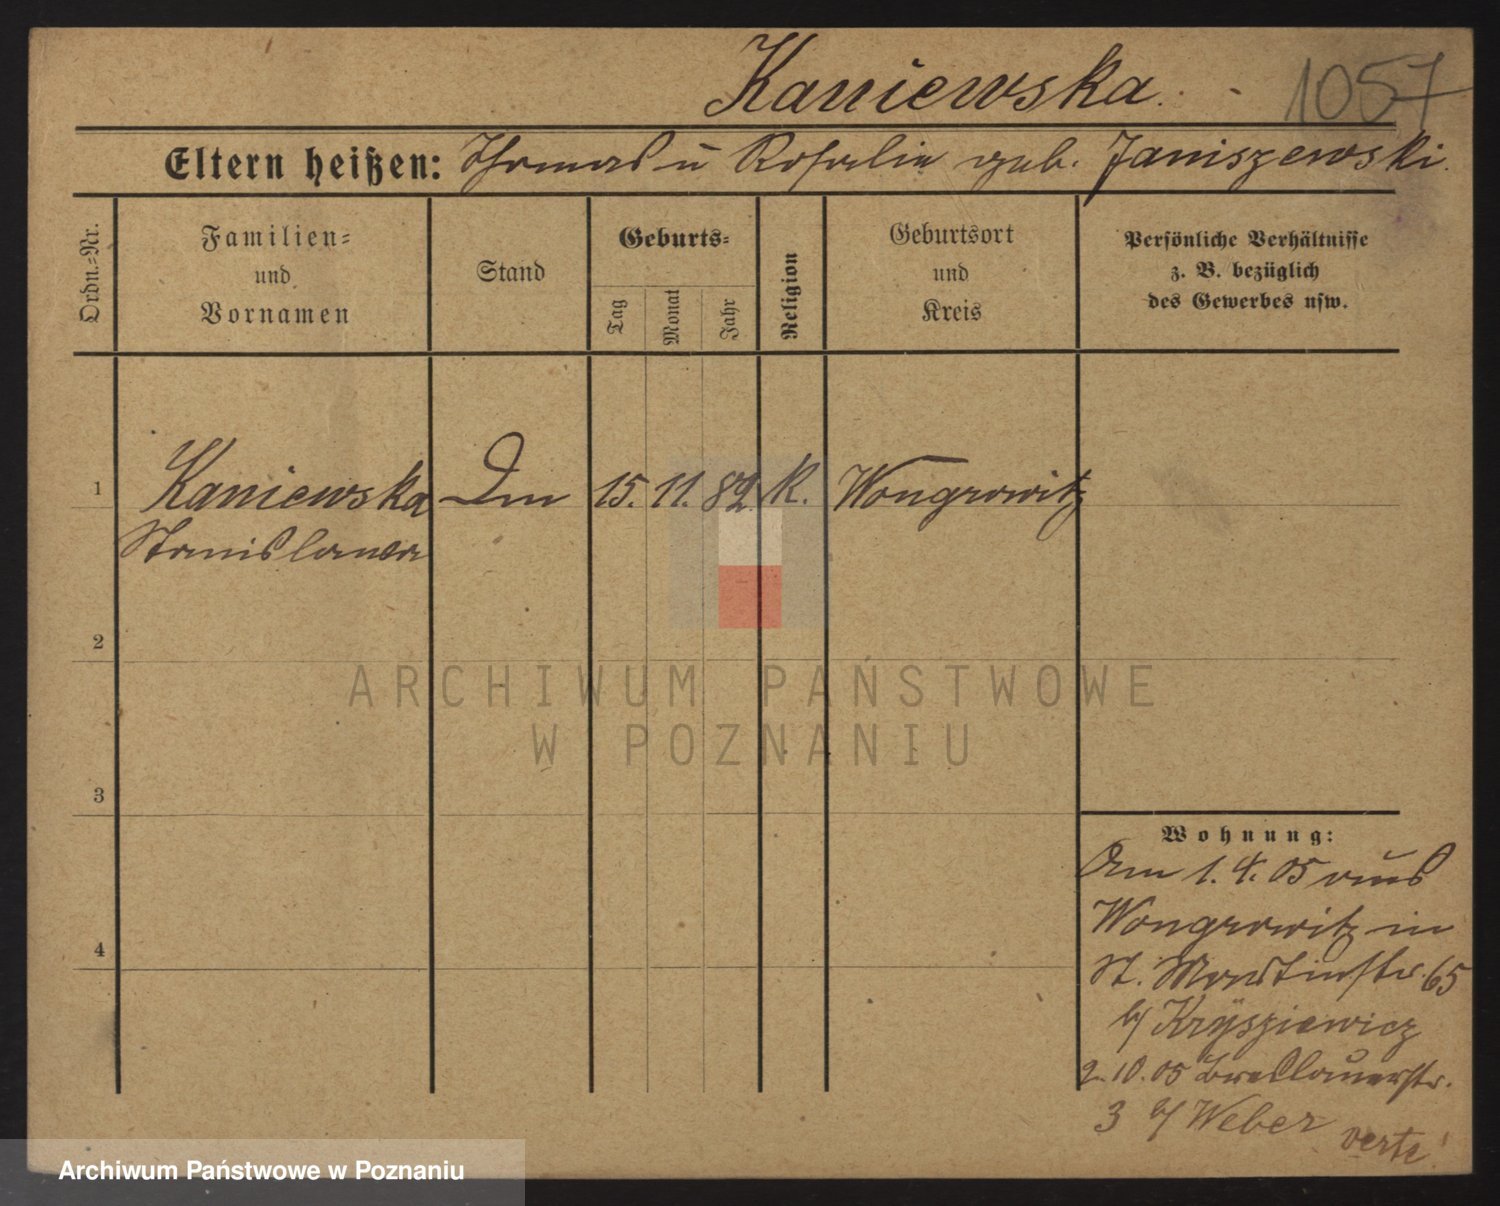 Kaniewska.
1057
Eltern heißen: Thomas u Rosalie geb. Janiszewski.
Ordn.-Nr.
Familien-
und
Vornamen
Stand
Geburts-
Tag
Monat
Jahr
Religion
Geburtsort
und
Kreis
Persönliche Verhältnisse
z. B. bezüglich
des Gewerbes usw.
1 Kaniewska 15. 11. 82. K. Wongrowitz
Stanislawa
2
3
4
Wohnung:
Am 1. 4. 05 aus
Wongrowitz in
St. Martinstr. 65
b/ Krysziewicz
2. 10. 05 Breslauerstr.
3 b/ Weber
verte!
ARCHIWUM PAŃSTWOWE
W POZNANIU
Archiwum Państwowe w Poznaniu